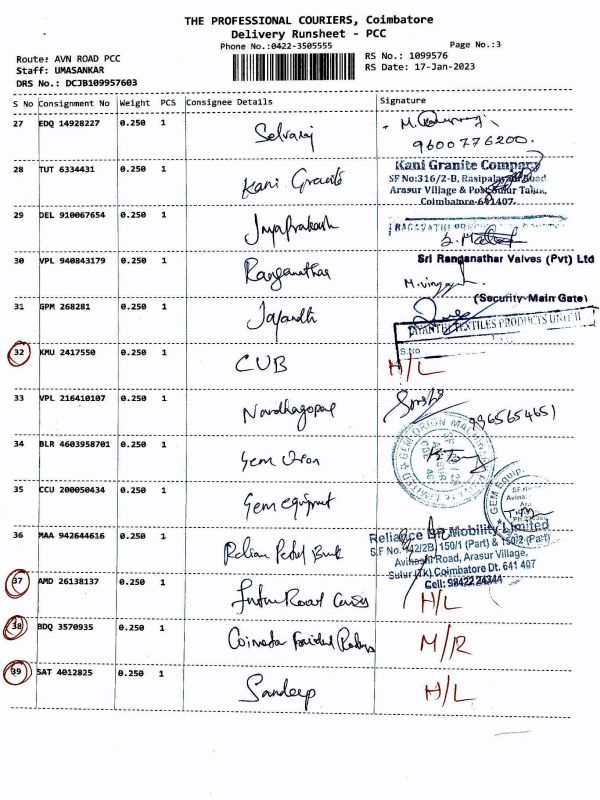 THE PROFESSIONAL COURIERS, Coimbatore
Delivery Runsheet - PCC
Phone No.:0422-3505555
Page No.:3
Route: AVN ROAD PCC
Staff: UMASANKAR
DRS No.: DCJB109957603
RS No.: 1099576
RS Date: 17-Jan-2023
S No Consignment No Weight PCS Consignee Details Signature
27 EDQ 14928227 0.250 1 Selvaraj
9600776200.
28 TUT 6334431 0.250 1 Kani Granite
Kani Granite Company
SF No:316/2-B, Rasipalayam Road
Arasur Village & Post Sulur Taluk,
Coimbatore-641407.
29 DEL 910067654 0.250 1 Jayaprakash
30 VPL 940843179 0.250 1 Ranganathar
Sri Ranganathar Valves (Pvt) Ltd
(Security-Main Gate)
31 GPM 268281 0.250 1
JAYANTHI TEXTILES PRODUCTS UNIT II
S.NO
32 KMU 2417550 0.250 1 CUB H/L
33 VPL 216410107 0.250 1 Nandhagopal
9965654651
34 BLR 4603958701 0.250 1 Gem Orion
35 CCU 200050434 0.250 1 Gem equipment
GEM Equip
36 MAA 942644616 0.250 1
Reliance BP Mobility Limited
S.F No. 142/2B, 150/1 (Part) & 150/2 (Part)
Avinashi Road, Arasur Village,
Sulur (Tk) Coimbatore Dt. 641 407
Cell: 98422 24344
37 AMD 26138137 0.250 1 H/L
38 BDQ 3570935 0.250 1 M/R
39 SAT 4012825 0.250 1 Sandeep H/L